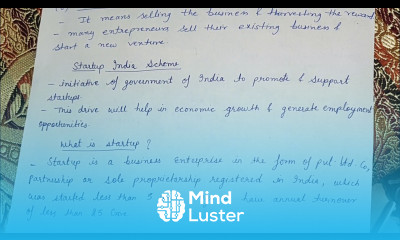 - It means selling the business & harvesting the reward
- many entrepreneurs sell their existing business &
start a new venture
Startup India Scheme
- initiative of government of India to promote & support
startups.
- This drive will help in economic growth & generate employment
opportunities.
What is startup?
- Startup is a business Enterprise in the form of pvt ltd Co,
partnership or sole proprietorship registered in India, which
was started less than 5 have annual turnover
of less than 25 Crore
Mind
Luster